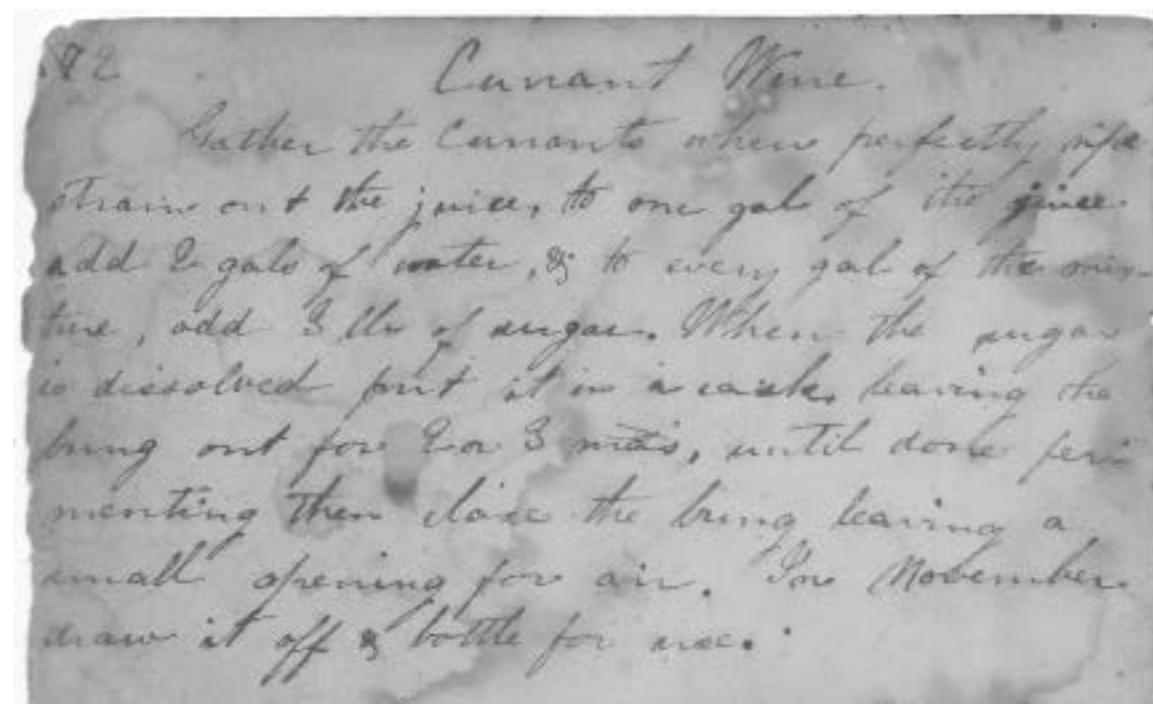 82
Currant Wine.
Gather the Currants when perfectly ripe
strain out the juice, to one gal of the juice
add 2 gals of water, & to every gal of the mix-
ture, add 3 lbs of sugar. When the sugar
is dissolved put it in a cask, leaving the
bung out for 2 or 3 mts, until done fer-
menting then close the bung leaving a
small opening for air. In November
draw it off & bottle for use.